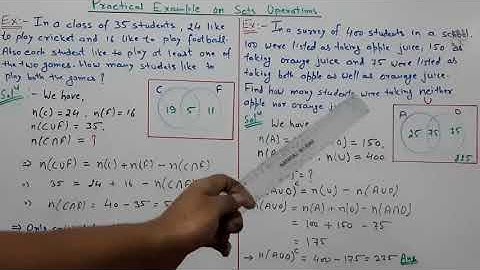 Practical Example on Sets Operations
Ex:- In a class of 35 students, 24 like
to play cricket and 16 like to play football.
Also each student like to play at least one of
the two games. How many students like to
play both the games?
Solⁿ :- We have,
n(C) = 24, n(F) = 16
n(C∪F) = 35,
n(C∩F) = ?
⇒ n(C∪F) = n(C) + n(F) - n(C∩F)
⇒ 35 = 24 + 16 - n(C∩F)
⇒ n(C∩F) = 40 - 35 = 5
C F
19 5 11
Ex:- In a survey of 400 students in a school,
100 were listed as taking apple juice, 150 as
taking orange juice and 75 were listed as
taking both apple as well as orange juice.
Find how many students were taking neither
apple nor orange
Solⁿ We have
n(A) = 150,
n(U) = 400.
= ?
n(U) - n(A∪O)
n(A∪O) = n(A) + n(O) - n(A∩O)
= 100 + 150 - 75
= 175
= 400 - 175 = 225 Ans
U
A O
25 75 75
225